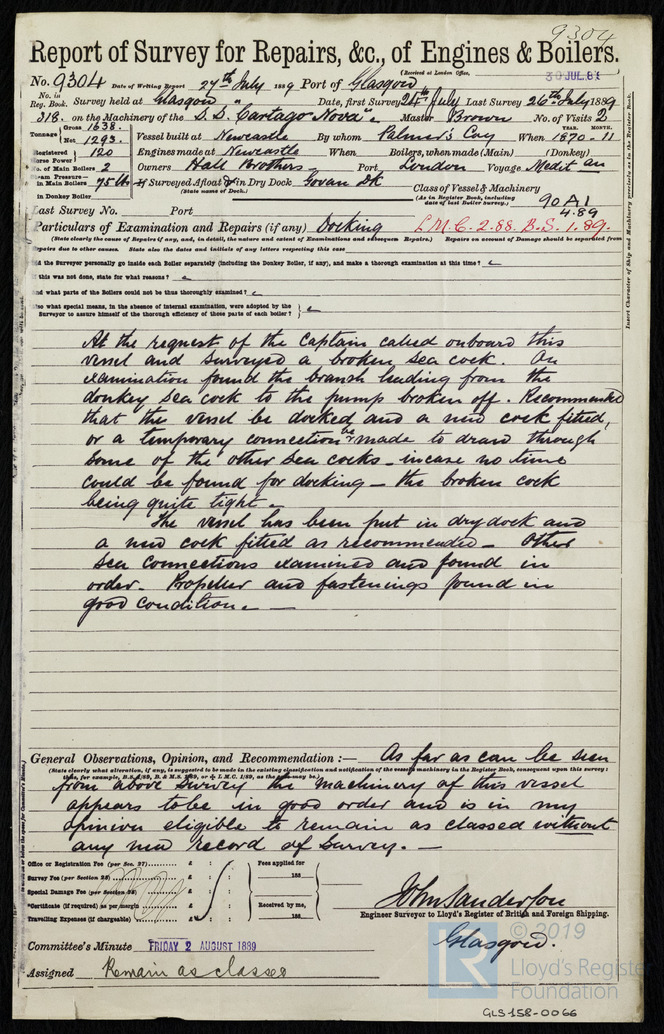 9304
Report of Survey for Repairs, &c., of Engines & Boilers.
(Received at London Office,
30 JUL. 89
No. 9304 Date of Writing Report 27th July 1889 Port of Glasgow
No. in Reg. Book. Survey held at Glasgow Date, first Survey 24th July Last Survey 26th July 1889
318. on the Machinery of the S.S. "Cartago Nova". Master Brown No. of Visits 2
Tonnage Gross 1638. Net 1293. Vessel built at Newcastle By whom Palmer's Coy When YEAR. MONTH. 1870-11
Registered Horse Power 120 Engines made at Newcastle When Boilers, when made (Main) (Donkey)
No. of Main Boilers 2 Owners Hall Brothers Port London Voyage Meditan
Steam Pressure in Main Boilers 75 lbs If Surveyed Afloat or in Dry Dock Govan Dk
(State name of Dock.)
in Donkey Boiler
Class of Vessel & Machinery
(As in Register Book, including date of last Boiler Survey.)
90 A1
4.89
Last Survey No. Port
Particulars of Examination and Repairs (if any) Docking L.M.C. 2.88. B.S. 1.89.
(State clearly the cause of Repairs if any, and, in detail, the nature and extent of Examinations and subsequent Repairs.) Repairs on account of Damage should be separated from
Repairs due to other causes. State also the dates and initials of any letters respecting this case
Did the Surveyor personally go inside each Boiler separately (including the Donkey Boiler, if any), and make a thorough examination at this time?
If this was not done, state for what reasons?
And what parts of the Boilers could not be thus thoroughly examined?
Also what special means, in the absence of internal examination, were adopted by the
Surveyor to assure himself of the thorough efficiency of those parts of each boiler?
Insert Character of Ship and Machinery precisely as in the Register Book.
At the request of the Captain called onboard this
vessel and surveyed a broken sea cock. On
examination found the branch leading from the
donkey sea cock to the pump broken off. Recommended
that the vessel be docked and a new cock fitted,
or a temporary connection be made to draw through
some of the other sea cocks - incase no time
could be found for docking - the broken cock
being quite tight.
The vessel has been put in dry dock and
a new cock fitted as recommended - Other
sea connections examined and found in
order. Propeller and fastenings found in
good condition.
General Observations, Opinion, and Recommendation :— As far as can be seen
(State clearly what alteration, if any, is suggested to be made in the existing classification and notification of the vessel's machinery in the Register Book, consequent upon this survey:
thus, for example, B.S. 1/89, B. & M.S. 1/89, or L.M.C. 1/89, as the case may be.)
from above survey the machinery of this vessel
appears to be in good order and is in my
opinion eligible to remain as classed without
any new record of Survey. —
Office or Registration Fee (per Sec. 27) £ : :
Survey Fee (per Section 28) £ : :
Special Damage Fee (per Section 28) £ : :
*Certificate (if required) as per margin £ : :
Travelling Expenses (if chargeable) £ : :
Fees applied for
188
Received by me,
188
John Sanderson
Engineer Surveyor to Lloyd's Register of British and Foreign Shipping.
Glasgow.
Committee's Minute FRIDAY 2 AUGUST 1889
Assigned Remain as classed
© 2019
LR
Lloyd's Register
Foundation
GLS158-0066